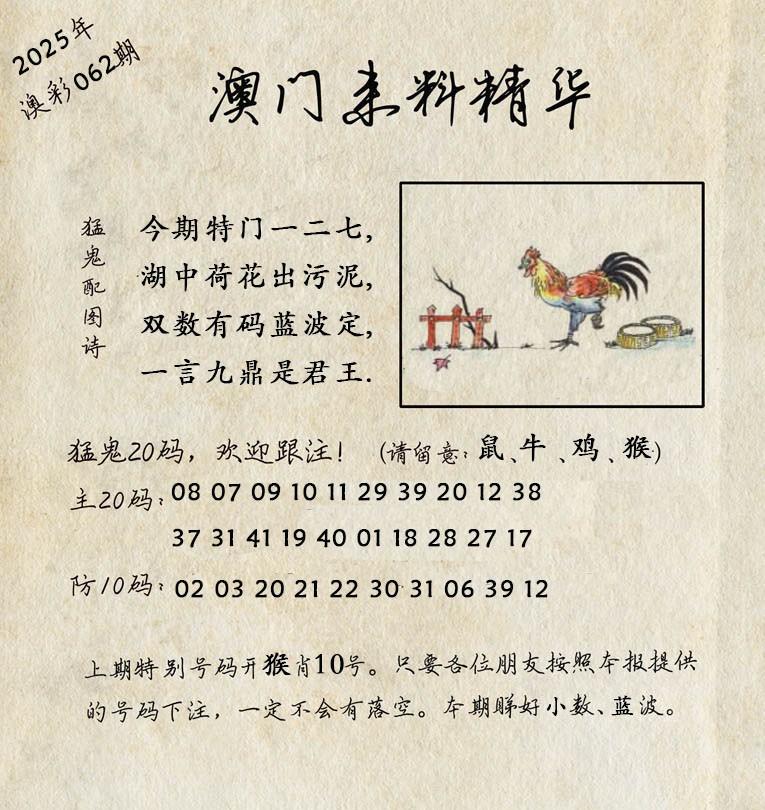 2025年
澳彩062期
澳门来料精华
猛鬼配图诗
今期特门一二七,
湖中荷花出污泥,
双数有码蓝波定,
一言九鼎是君王.
猛鬼20码，欢迎跟注！ (请留意：鼠、牛、鸡、猴)
主20码：08 07 09 10 11 29 39 20 12 38
37 31 41 19 40 01 18 28 27 17
防10码：02 03 20 21 22 30 31 06 39 12
上期特别号码开猴肖10号。只要各位朋友按照本报提供
的号码下注，一定不会有落空。本期睇好小数、蓝波。